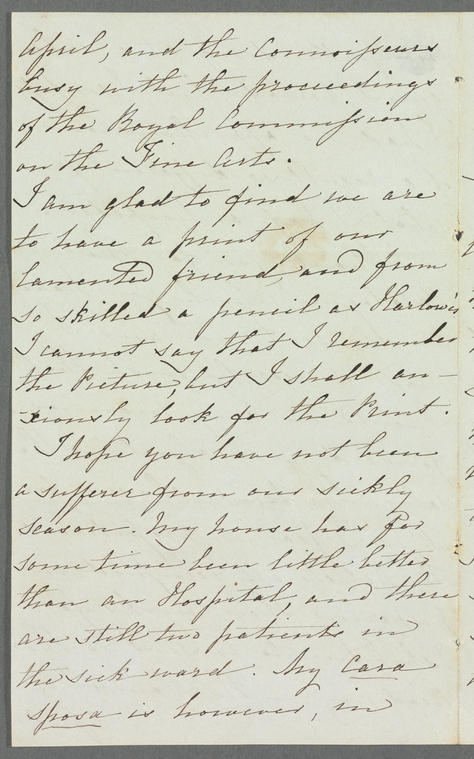 April, and the Connoisseurs
busy with the proceedings
of the Royal Commission
on the Fine Arts.
I am glad to find we are
to have a print of our
lamented friend, and from
so skilled a pencil as Harlow's
I cannot say that I remember
the Picture, but I shall an-
-xiously look for the Print.
I hope you have not been
a sufferer from our sickly
season. My house has for
some time been little better
than an Hospital, and there
are still two patients in
the sick ward. My Cara
Sposa is however, in